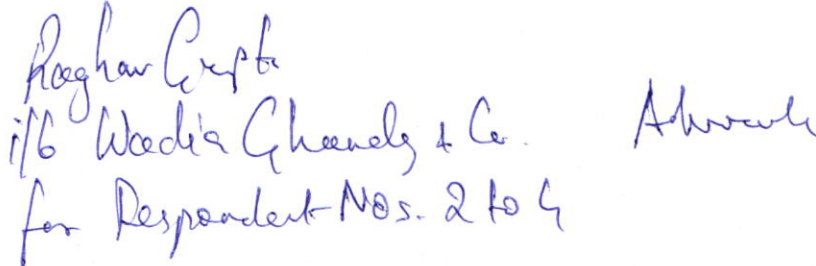 Raghav Gupta
i/b Wadia Ghandy & Co. Advocate
for Respondent Nos. 2 to 4